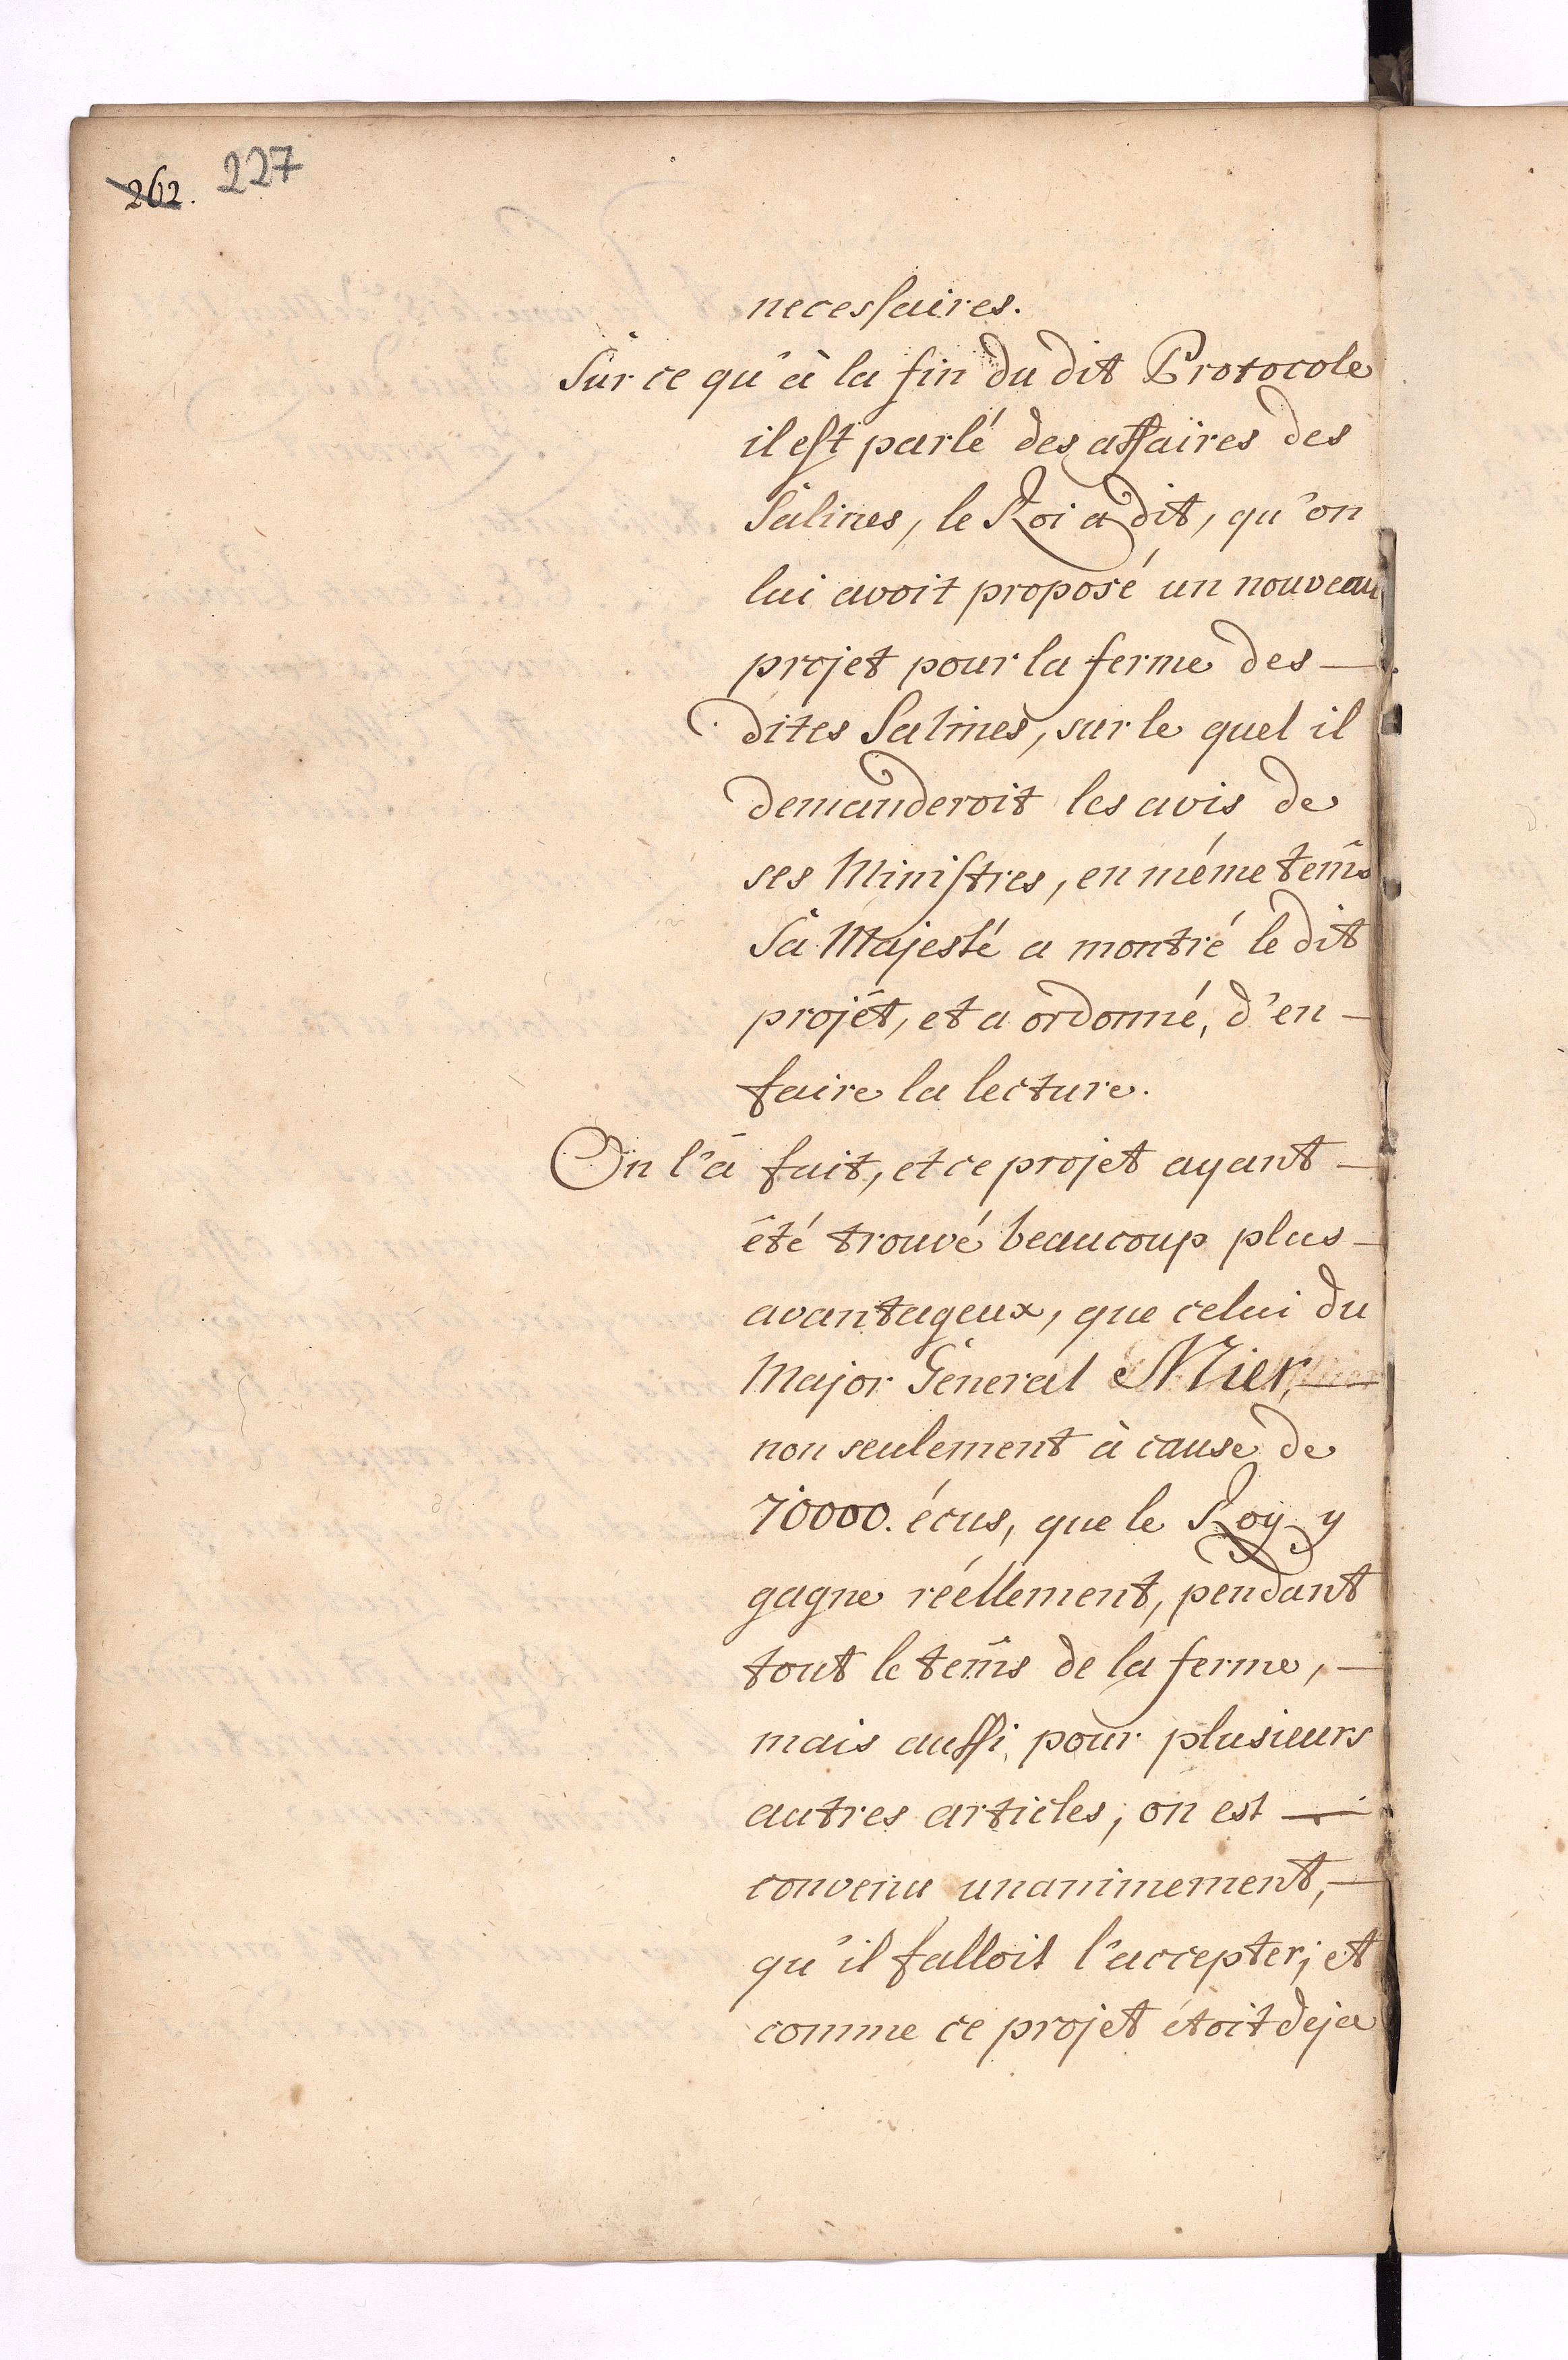 262. 227
necessaires.
Sur ce qu'à la fin du dit Protocole
il est parlé des affaires des
Salines, le Roi a dit, qu'on
lui avoit proposé un nouveau
projet pour la ferme des —
dites Salines, sur le quel il
demanderoit les avis de
ses Ministres, en même tem̃s
Sa Majesté a montré le dit
projét, et a ordonné, d'en —
faire la lecture.
On l'a fait, et ce projet ayant —
été trouvé beaucoup plus —
avantageux, que celui du
Major Géneral Mier, —
non seulement à cause de
70000. écus, que le Roy y
gagne réellement, pendant
tout le tem̃s de la ferme, —
mais aussi, pour plusieurs
autres articles, on est —
convenu unanimement, —
qu'il falloit l'accepter; et
comme ce projet étoit deja